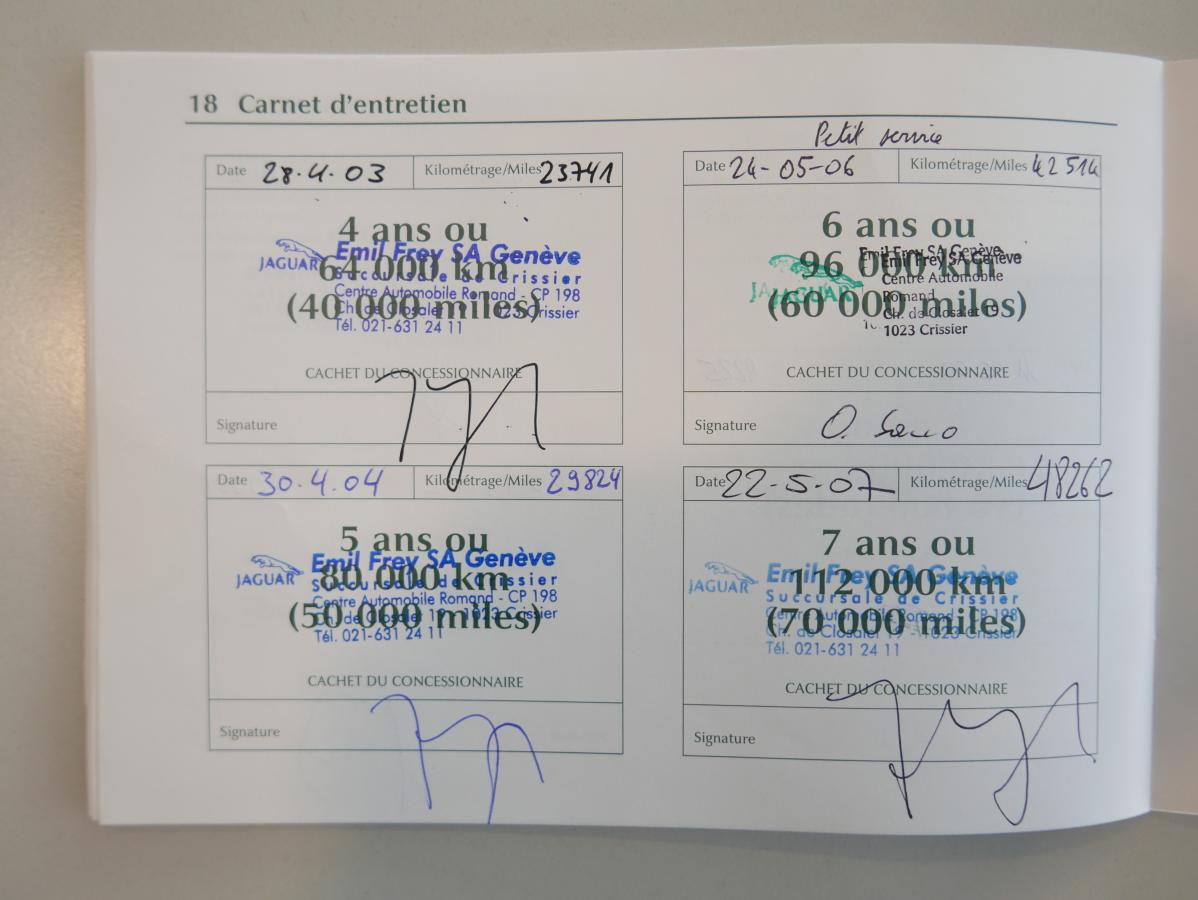 18 Carnet d'entretien
Date 28.4.03 Kilométrage/Miles 23741
4 ans ou
64 000 km
(40 000 miles)
JAGUAR
Emil Frey SA Genève
Succursale de Crissier
Centre Automobile Romand - CP 198
Ch. de Closalet 19 - 1023 Crissier
Tél. 021-631 24 11
CACHET DU CONCESSIONNAIRE
Signature
Date 30.4.04 Kilométrage/Miles 29824
5 ans ou
80 000 km
(50 000 miles)
JAGUAR
Emil Frey SA Genève
Succursale de Crissier
Centre Automobile Romand - CP 198
Ch. de Closalet 19 - 1023 Crissier
Tél. 021-631 24 11
CACHET DU CONCESSIONNAIRE
Signature
Petit service
Date 24-05-06 Kilométrage/Miles 42514
6 ans ou
96 000 km
(60 000 miles)
JAGUAR
Emil Frey SA Genève
Emil Frey SA Genève
Centre Automobile
Romand
Ch. de Closalet 19
1023 Crissier
CACHET DU CONCESSIONNAIRE
Signature
Date 22-5-07 Kilométrage/Miles 48262
7 ans ou
112 000 km
(70 000 miles)
JAGUAR
Emil Frey SA Genève
Succursale de Crissier
Centre Automobile Romand - CP 198
Ch. de Closalet 19 - 1023 Crissier
Tél. 021-631 24 11
CACHET DU CONCESSIONNAIRE
Signature